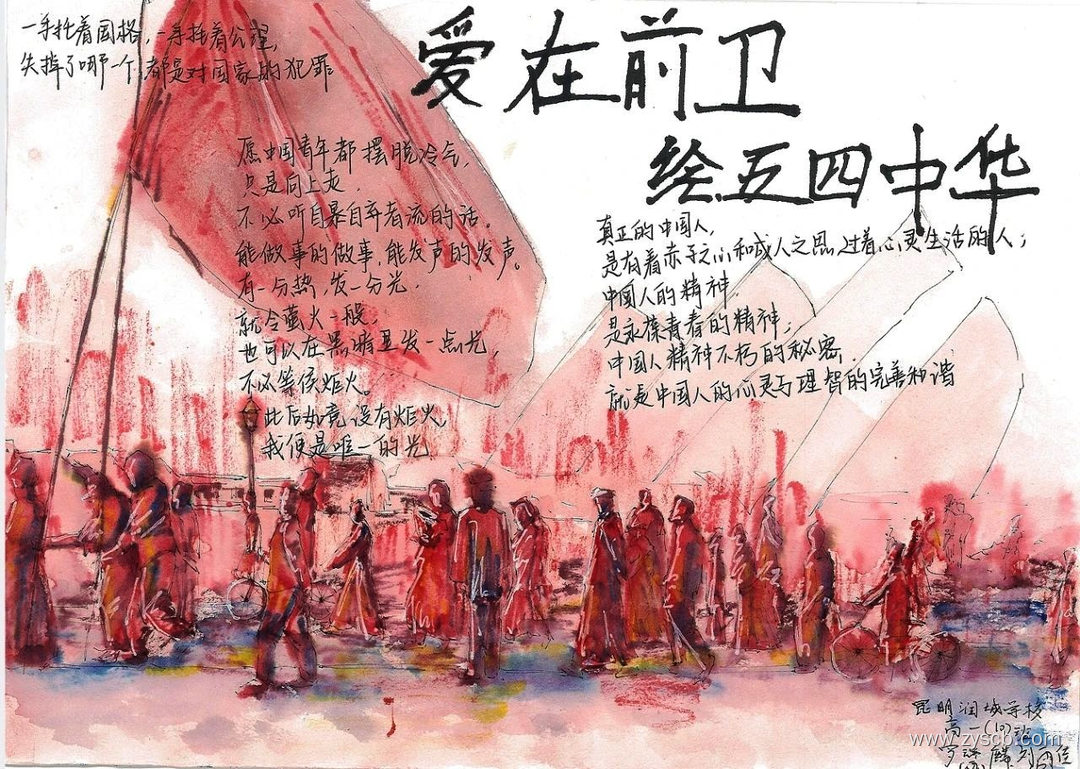 爱在前卫
绘五四中华
一手托着国格,一手托着公理,
失掉了哪一个,都是对国家的犯罪
愿中国青年都摆脱冷气,
只是向上走.
不必听自暴自弃者流的话.
能做事的做事,能发声的发声。
有一分热,发一分光.
就令萤火一般,
也可以在黑暗里发一点光,
不必等候炬火。
此后如竟没有炬火,
我便是唯一的光
真正的中国人,
是有着赤子之心和成人之思,过着心灵生活的人;
中国人的精神,
是永葆青春的精神;
中国人精神不朽的秘密,
就是中国人的心灵与理智的完善和谐
昆明润城学校
高一(10)班
www.zyscb.com